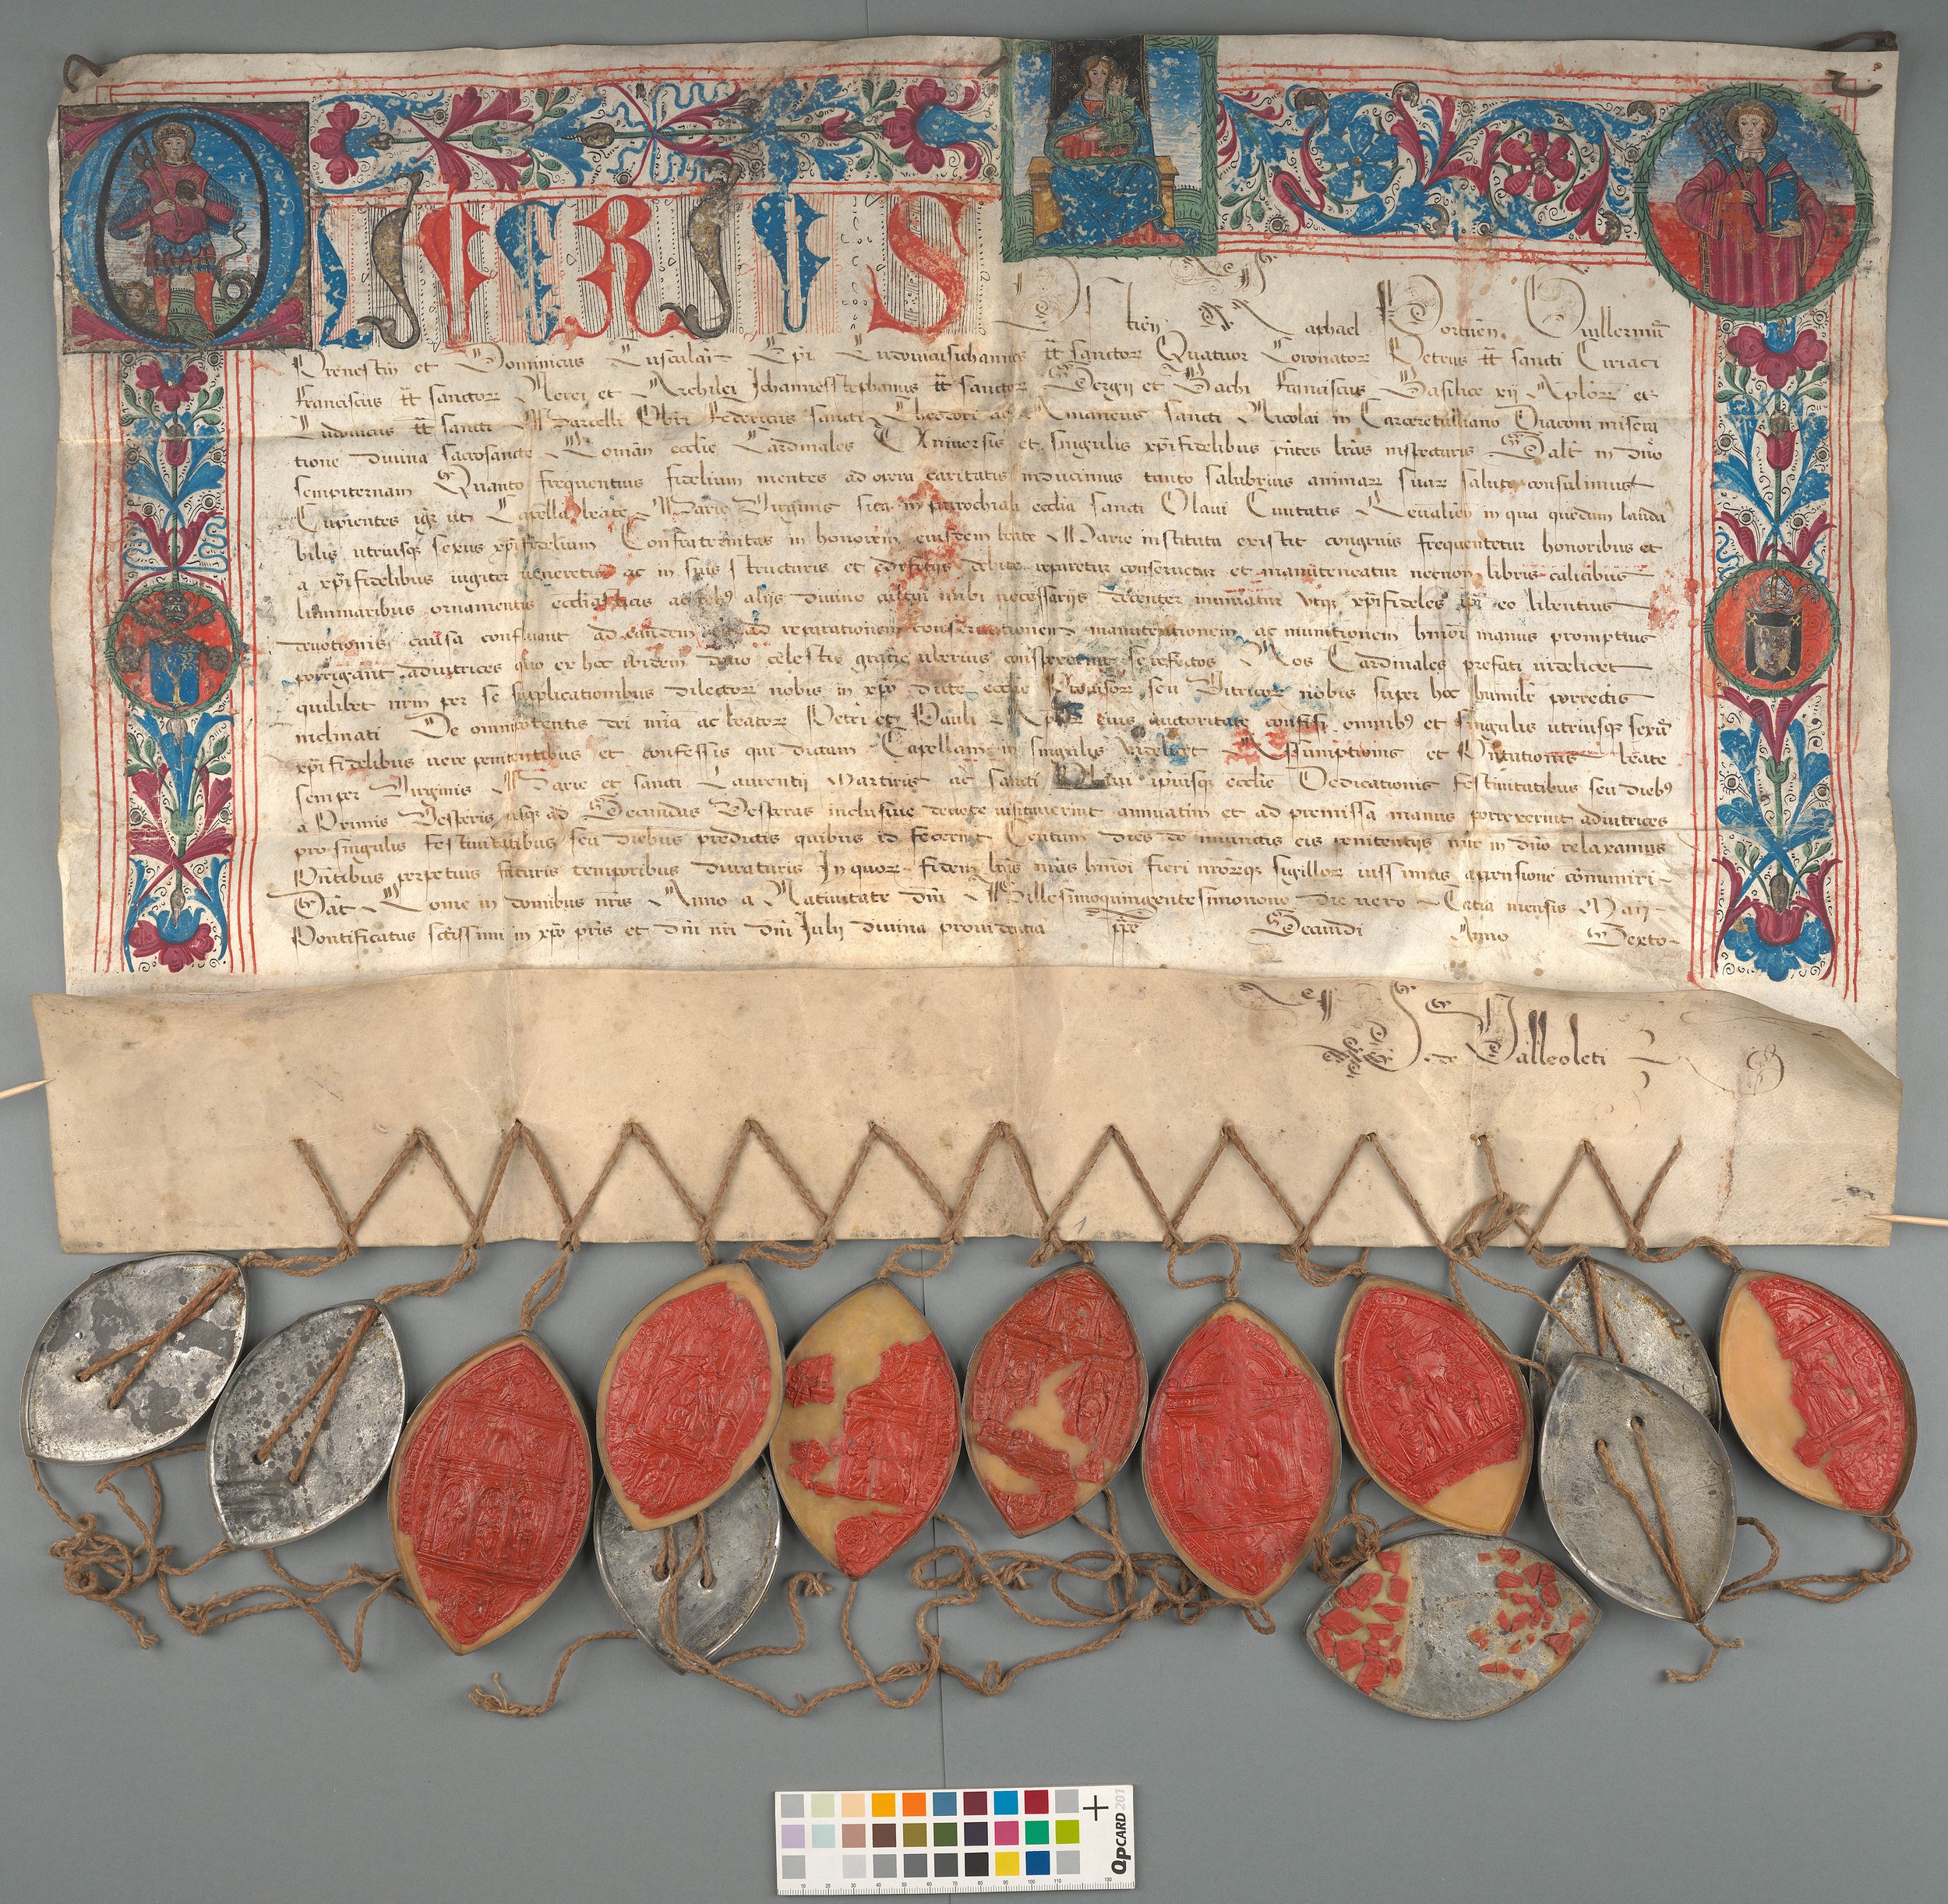 OLIVERIUS Raphael Portuen̄. Guillermꝰ
Prenestin̄ et Dominicus Tusculan̄ Ep̄i Ludouicusiohannes tt̄ sanctoꝝ Quatuor Coronatoꝝ Petrus tt̄ sancti Ciriaci
Franciscus tt̄ sanctoꝝ Nerei et Archilei Johannesstephanus tt̄ sanctoꝝ Sergij et Bachi Franciscus Basilice xij Ap̄loꝝ et
Ludouicus tt̄ sancti Marcelli Pb̄ri Federicus sancti Theodori ac Amaneus sancti Nicolai in Carceretulliano Diaconi misera
tione diuina Sacrosancte Roman̄ ecclīe Cardinales Uniuersis et singulis xp̄ifidelibus pn̄tes lr̄as inspecturis Salt̄ in dn̄o
sempiternam Quanto frequentius fidelium mentes ad opera caritatis inducimus tanto salubrius animaꝝ suaꝝ saluti consulimus
Cupientes igr̄ ut Capella beate Marie Virginis sita in parrochiali ecclīa sancti Olaui Ciuitatis Reualien̄ in qua quedam lauda
bilis utriusqꝫ sexus xp̄ifidelium Confraternitas in honorem eiusdem beate Marie instituta existit congruis frequentetur honoribus et
a xp̄ifidelibus iugiter ueneretur ac in suis structuris et edificijs debite reparetur conseruetur et manuteneatur necnon libris calicibus
luminaribus ornamentis ecclīasticis ac rebꝰ alijs diuino cultui inibi necessarijs decenter muniatur utqꝫ xp̄ifideles ip̄i eo libentius
deuotionis causa confluant ad eandem et ad reparationem conseruationem manutentionem ac munitionem hmōi manus promptius
porrigant adiutrices quo ex hoc ibidem dono celestis gratie uberius conspexerint se refectos Nos Cardinales prefati uidelicet
quilibet nr̄m per se supplicationibus dilectoꝝ nobis in xp̄o dicte ecclīe Prouisoꝝ seu Vitricoꝝ nobis super hoc humilr̄ porrectis
inclinati De omnipotentis dei mīa ac beatoꝝ Petri et Pauli Ap̄loꝝ eius auctoritate confisi omnibꝰ et singulis utriusqꝫ sexus
xp̄ifidelibus uere penitentibus et confessis qui dictam Capellam in singulis uidelicet Assumptionis et Pn̄tationis beate
semper Virginis Marie et sancti Laurentij Martiris ac sancti Olaui ipsiusqꝫ ecclīe Dedicationis festiuitatibus seu diebꝰ
a Primis Vesperis usqꝫ ad Secundas Vesperas inclusiue deuote uisitauerint annuatim et ad premissa manus porrexerint adiutrices
pro singulis festiuitatibus seu diebus predictis quibus id fecerint Centum dies de iniunctis eis penitentijs mīr in dn̄o relaxamus
Pn̄tibus perpetuis futuris temporibus duraturis In quoꝝ fidem lr̄as nr̄as hmōi fieri nr̄oꝝqꝫ sigilloꝝ iussimus appensione cōmuniri
Dat̄ Rome in domibus nr̄is Anno a Natiuitate dn̄i Millesimoquingentesimonono Die uero Tertia mensis Maij
Pontificatus sctīssimi in xp̄o pr̄is et dn̄i nr̄i dn̄i Julij diuina prouidentia pp̄e Secundi Anno Sexto
de Valleoleti
1
QpCARD 201
10 20 30 40 50 60 70 80 90 100 110 130